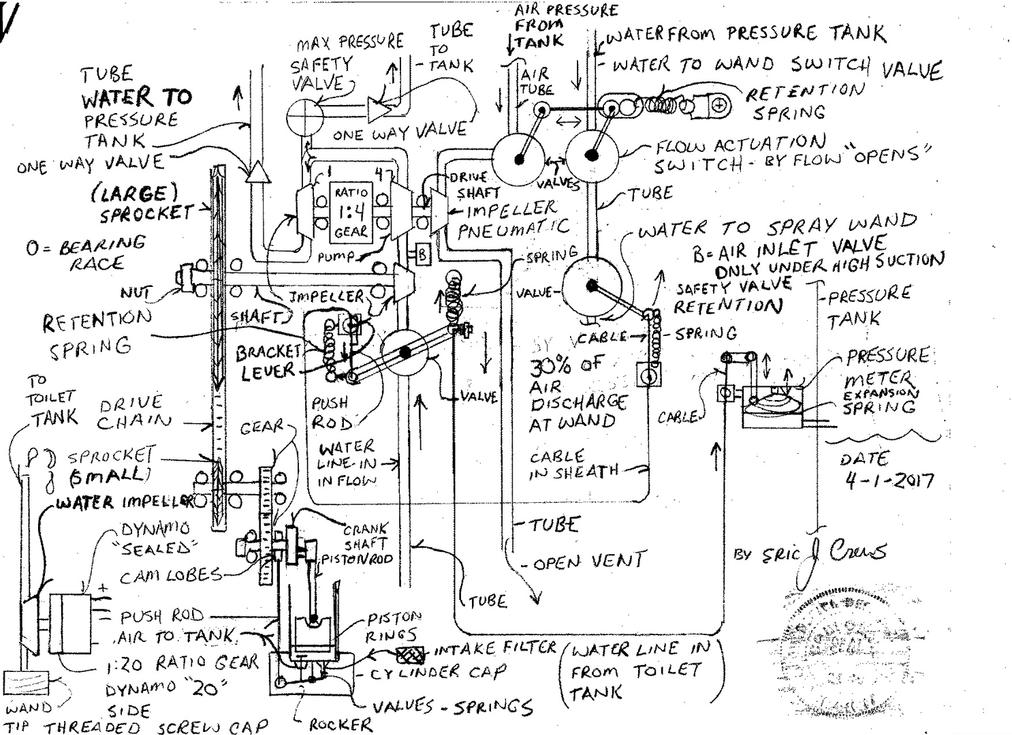 AIR PRESSURE
FROM
TANK
WATER FROM PRESSURE TANK
WATER TO WAND SWITCH VALVE
MAX PRESSURE
SAFETY
VALVE
TUBE
TO
TANK
AIR
TUBE
RETENTION
SPRING
TUBE
WATER TO
PRESSURE
TANK
ONE WAY VALVE
ONE WAY VALVE
FLOW ACTUATION
SWITCH - BY FLOW "OPENS"
VALVES
(LARGE)
SPROCKET
1
RATIO
1:4
GEAR
4
DRIVE
SHAFT
IMPELLER
PNEUMATIC
TUBE
WATER TO SPRAY WAND
B = AIR INLET VALVE
ONLY UNDER HIGH SUCTION
SAFETY VALVE
RETENTION
SPRING
O = BEARING
RACE
PUMP
B
SPRING
NUT
SHAFT
IMPELLER
VALVE
CABLE
PRESSURE
TANK
RETENTION
SPRING
BRACKET
LEVER
30% OF
AIR
DISCHARGE
AT WAND
CABLE
PRESSURE
METER
EXPANSION
SPRING
TO
TOILET
TANK
DRIVE
CHAIN
GEAR
PUSH
ROD
VALVE
WATER
LINE IN
IN FLOW
CABLE
IN SHEATH
DATE
4-1-2017
SPROCKET
(SMALL)
WATER IMPELLER
DYNAMO
"SEALED"
CAM LOBES
CRANK
SHAFT
PISTON ROD
TUBE
OPEN VENT
BY ERIC J Crews
+
-
PUSH ROD
AIR TO TANK
1:20 RATIO GEAR
DYNAMO "20"
SIDE
PISTON
RINGS
TUBE
INTAKE FILTER
CYLINDER CAP
(WATER LINE IN
FROM TOILET
TANK)
VALVES - SPRINGS
ROCKER
WAND
TIP THREADED SCREW CAP